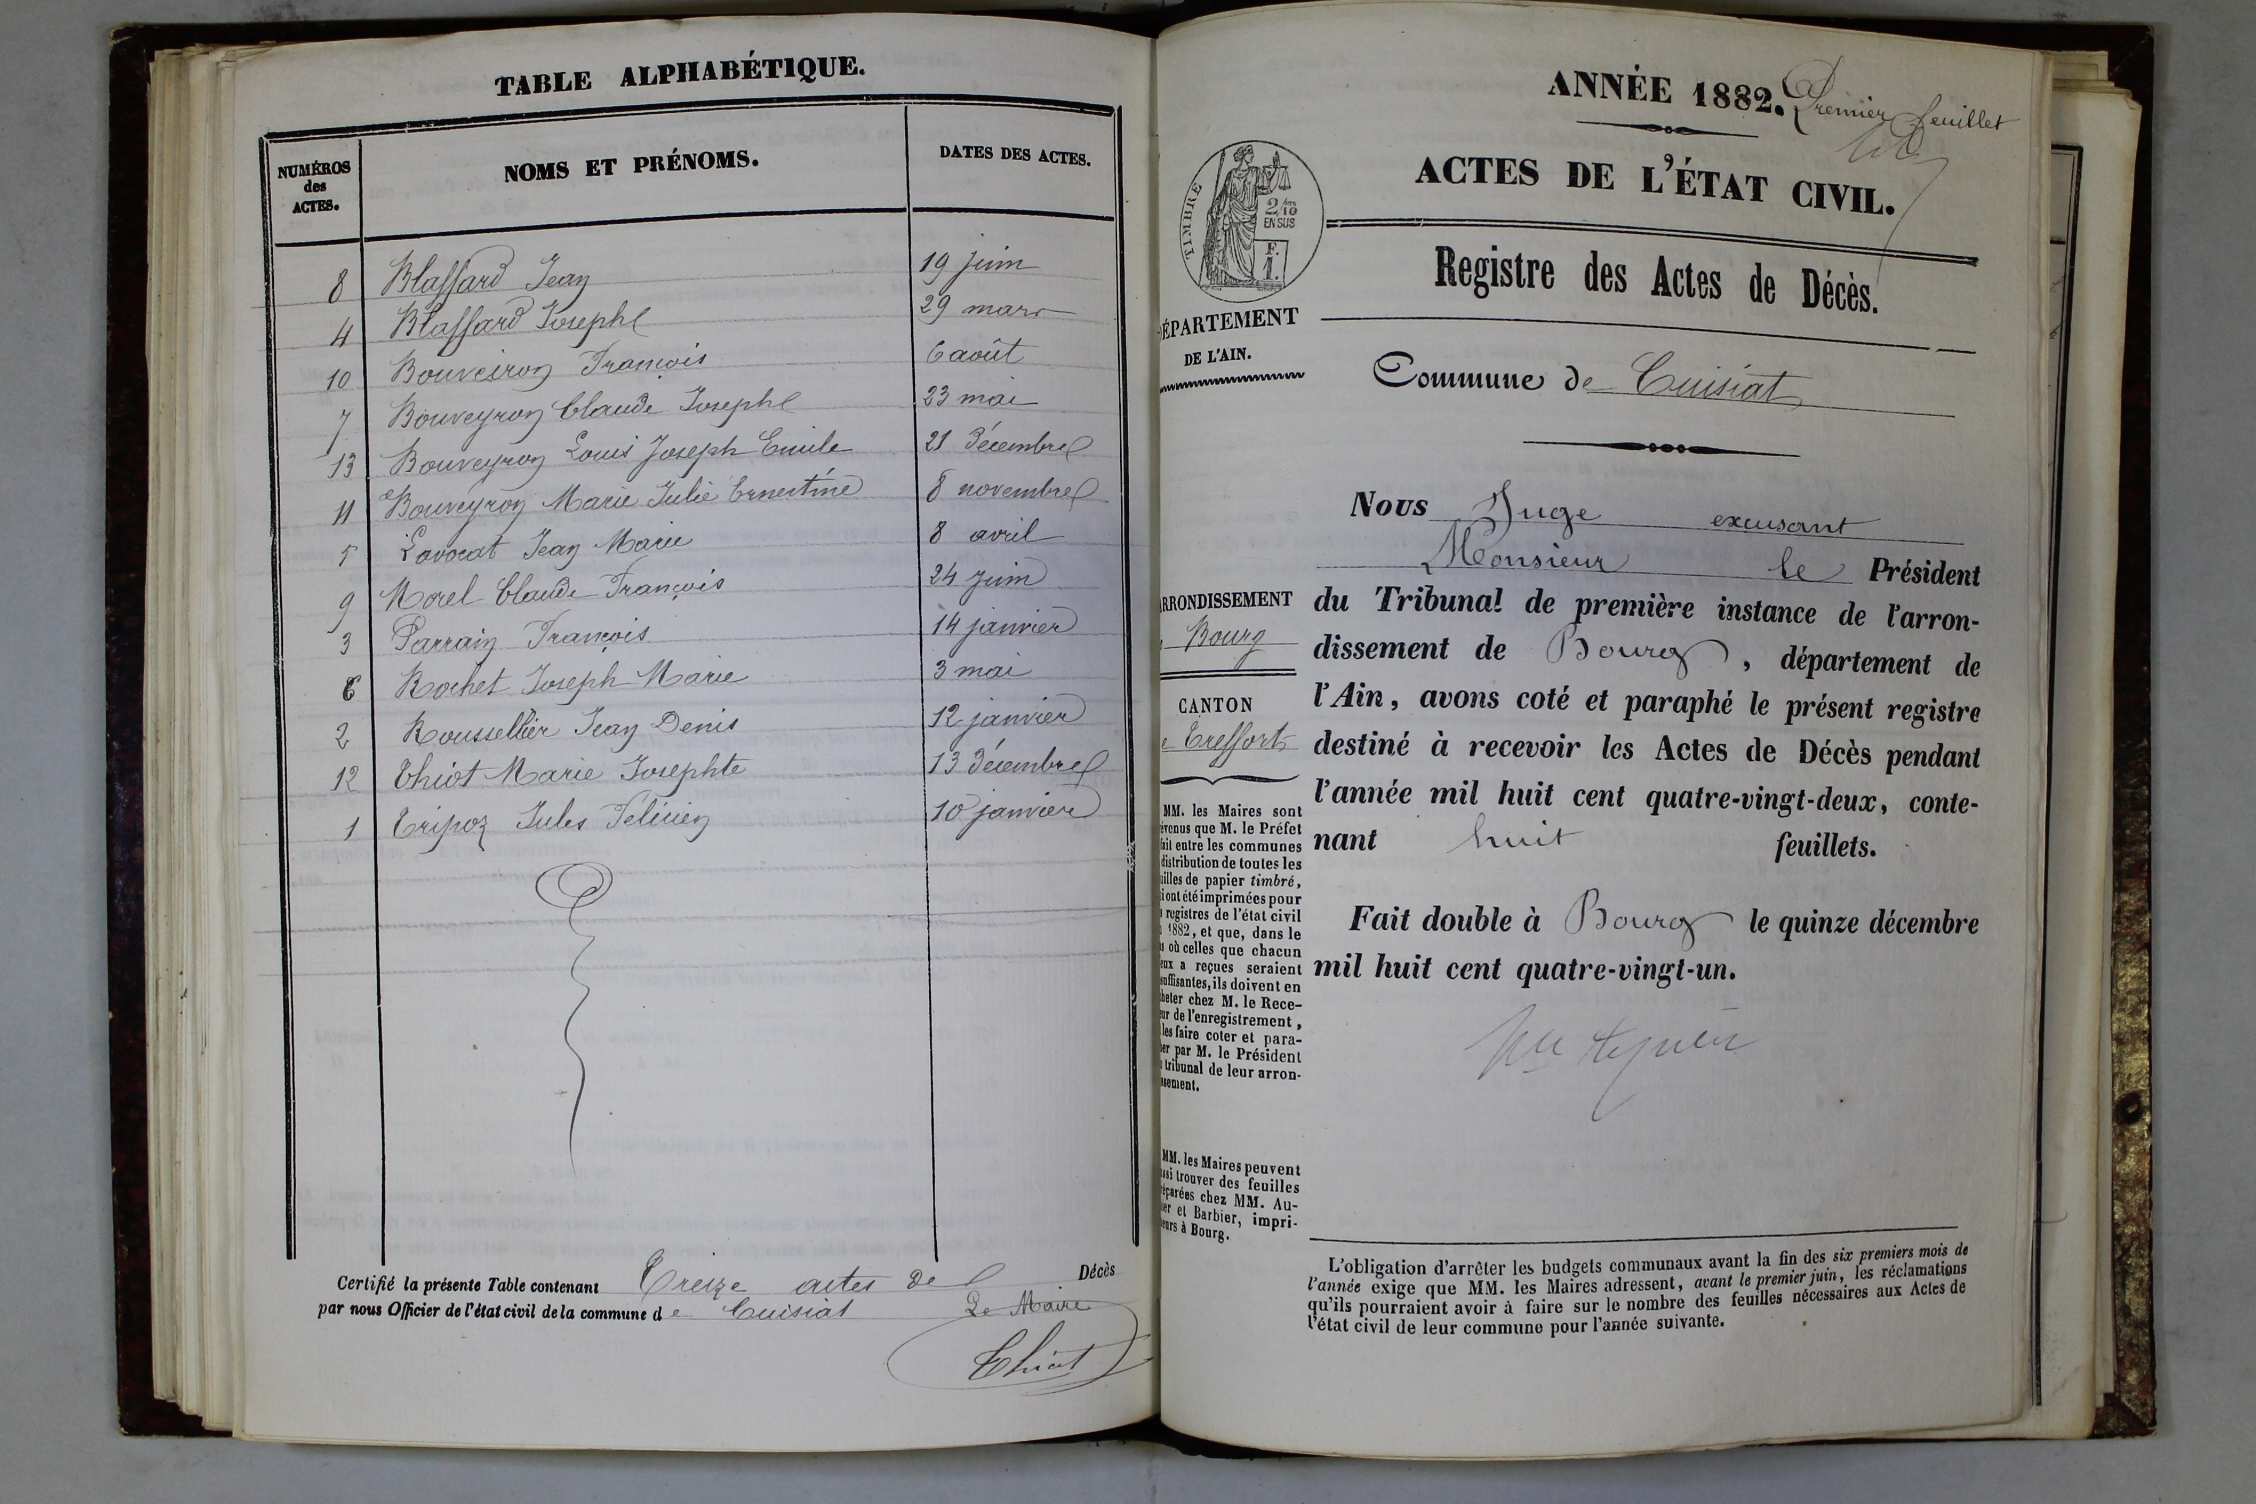 TABLE ALPHABÉTIQUE.
NUMÉROS des ACTES. NOMS ET PRÉNOMS. DATES DES ACTES.
8 Blassard Jean 19 juin
4 Blassard Josephe 29 mars
10 Bouveiron François 6 août
7 Bouveyron Claude Josephe 23 mai
13 Bouveyron Louis Joseph Emile 21 Décembre
11 Bouveyron Marie Julie Ernestine 8 novembre
5 Lavocat Jean Marie 8 avril
9 Morel Claude François 24 juin
3 Parrain François 14 janvier
6 Rochet Joseph Marie 3 mai
2 Roussellier Jean Denis 12 janvier
12 Thiot Marie Josephte 13 Décembre
1 Tripoz Jules Félicien 10 janvier
Certifié la présente Table contenant Treize actes de Décès
par nous Officier de l'état civil de la commune de Cuisiat Le Maire
Thiot
ANNÉE 1882. Premier feuillet
ACTES DE L'ÉTAT CIVIL.
TIMBRE
2/10
EN SUS
F.
1.
Registre des Actes de Décès.
DÉPARTEMENT
DE L'AIN.
Commune de Cuisiat
Nous Juge excusant
Monsieur le Président
du Tribunal de première instance de l'arron-
dissement de Bourg, département de
l'Ain, avons coté et paraphé le présent registre
destiné à recevoir les Actes de Décès pendant
l'année mil huit cent quatre-vingt-deux, conte-
nant huit feuillets.
Fait double à Bourg le quinze décembre
mil huit cent quatre-vingt-un.
RRONDISSEMENT
Bourg
CANTON
e Treffort
MM. les Maires sont
évenus que M. le Préfet
ait entre les communes
distribution de toutes les
uilles de papier timbré,
i ont été imprimées pour
registres de l'état civil
1882, et que, dans le
s où celles que chacun
eux a reçues seraient
suffisantes, ils doivent en
heter chez M. le Rece-
ur de l'enregistrement,
les faire coter et para-
er par M. le Président
tribunal de leur arron-
ssement.
MM. les Maires peuvent
ssi trouver des feuilles
éparées chez MM. Au-
er et Barbier, impri-
eurs à Bourg.
L'obligation d'arrêter les budgets communaux avant la fin des six premiers mois de
l'année exige que MM. les Maires adressent, avant le premier juin, les réclamations
qu'ils pourraient avoir à faire sur le nombre des feuilles nécessaires aux Actes de
l'état civil de leur commune pour l'année suivante.